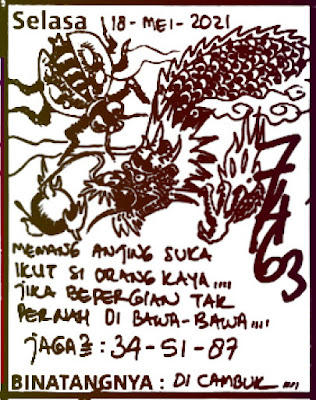 Selasa 18-MEI-2021
7463
MEMANG ANJING SUKA
IKUT SI ORANG KAYA....
JIKA BEPERGIAN TAK
PERNAH DI BAWA-BAWA....
JAGA²: 34-51-87
BINATANGNYA: DI CAMBUK....